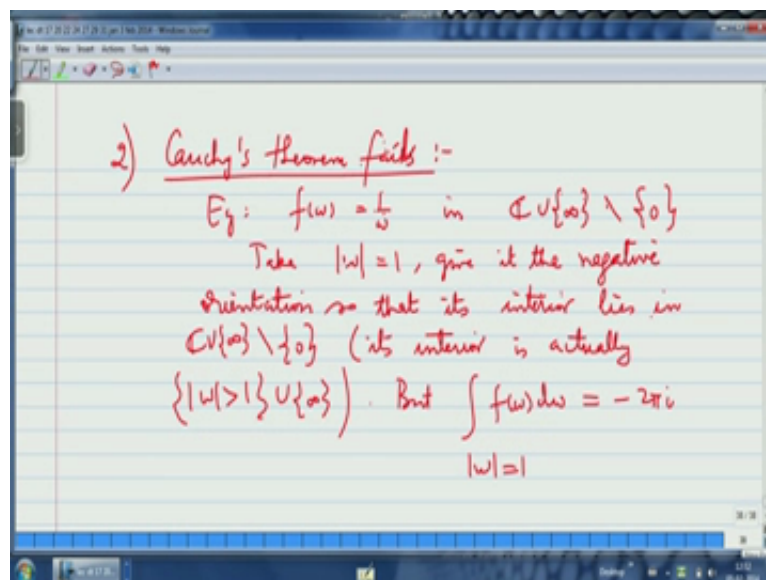 File Edit View Insert Actions Tools Help
2) Cauchy's theorem fails :-
Eg: f(w) = 1/w in ℂ ∪{∞} \ {0}
Take |w| = 1, give it the negative
orientation so that its interior lies in
ℂ∪{∞} \ {0} (its interior is actually
{|w|>1} ∪{∞}). But ∫ f(w) dw = - 2πi
|w|=1
38 / 38
38
Desktop
12:52